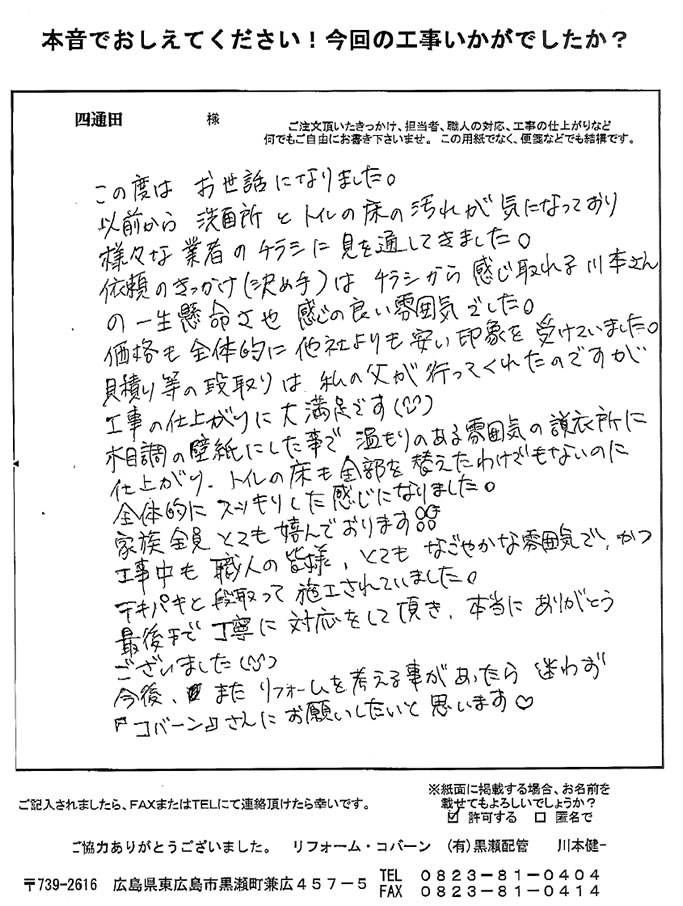 本音でおしえてください！今回の工事いかがでしたか？
四通田　様
ご注文頂いたきっかけ、担当者、職人の対応、工事の仕上がりなど
何でもご自由にお書き下さいませ。この用紙でなく、便箋などでも結構です。
この度は お世話になりました。
以前から 洗面所 と トイレの床の汚れが 気になっており
様々な業者のチラシに見を通してきました。
依頼のきっかけ(決め手)は チラシから 感じ取れる 川本さん
の一生懸命さや 感じの良い雰囲気でした。
価格も全体的に他社よりも安い印象を受けていました。
見積り等の段取りは 私の父が行ってくれたのですが
工事の仕上がりに大満足です(^^)
木目調の壁紙にした事で 温もりのある雰囲気の脱衣所に
仕上がり、トイレの床も全部を替えたわけでもないのに
全体的にスッキリした感じになりました。
家族全員とても嬉んでおります
工事中も 職人の皆様、とても なごやかな雰囲気で、かつ
テキパキと段取って施工されていました。
最後まで丁寧に対応をして頂き、本当にありがとう
ございました(^^)
今後、また リフォームを考える事があったら 迷わず
『コバーン』さんにお願いしたいと思います♡
ご記入されましたら、FAXまたはTELにて連絡頂けたら幸いです。
※紙面に掲載する場合、お名前を
載せてもよろしいでしょうか？
☑ 許可する　□ 匿名で
ご協力ありがとうございました。　リフォーム・コバーン　(有)黒瀬配管　川本健一
〒739-2616　広島県東広島市黒瀬町兼広４５７－５
TEL　０８２３－８１－０４０４
FAX　０８２３－８１－０４１４